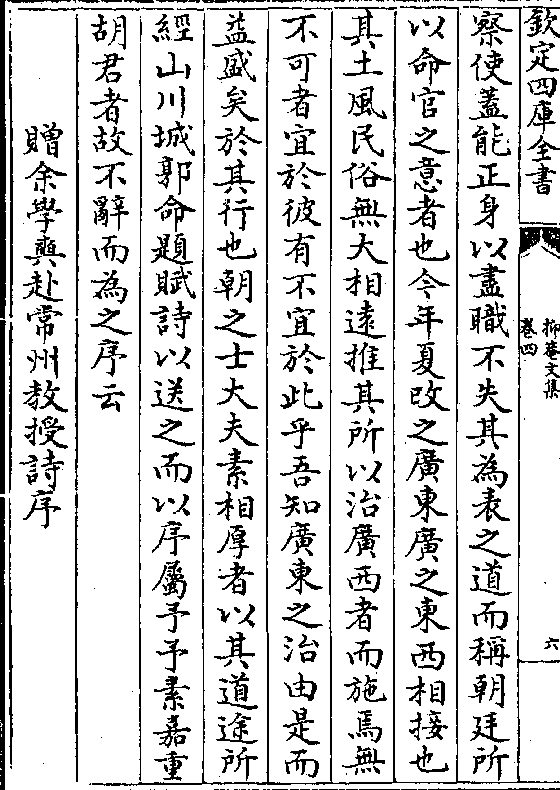 欽定四庫全書
抑菴文集
卷四
六
察使蓋能正身以盡職不失其為表之道而稱朝廷所
以命官之意者也今年夏改之廣東廣之東西相接也
其土風民俗無大相遠推其所以治廣西者而施焉無
不可者宜於彼有不宜於此乎吾知廣東之治由是而
益盛矣於其行也朝之士大夫素相厚者以其道途所
經山川城郭命題賦詩以送之而以序屬予予素嘉重
胡君者故不辭而為之序云
贈余學夔赴常州教授詩序